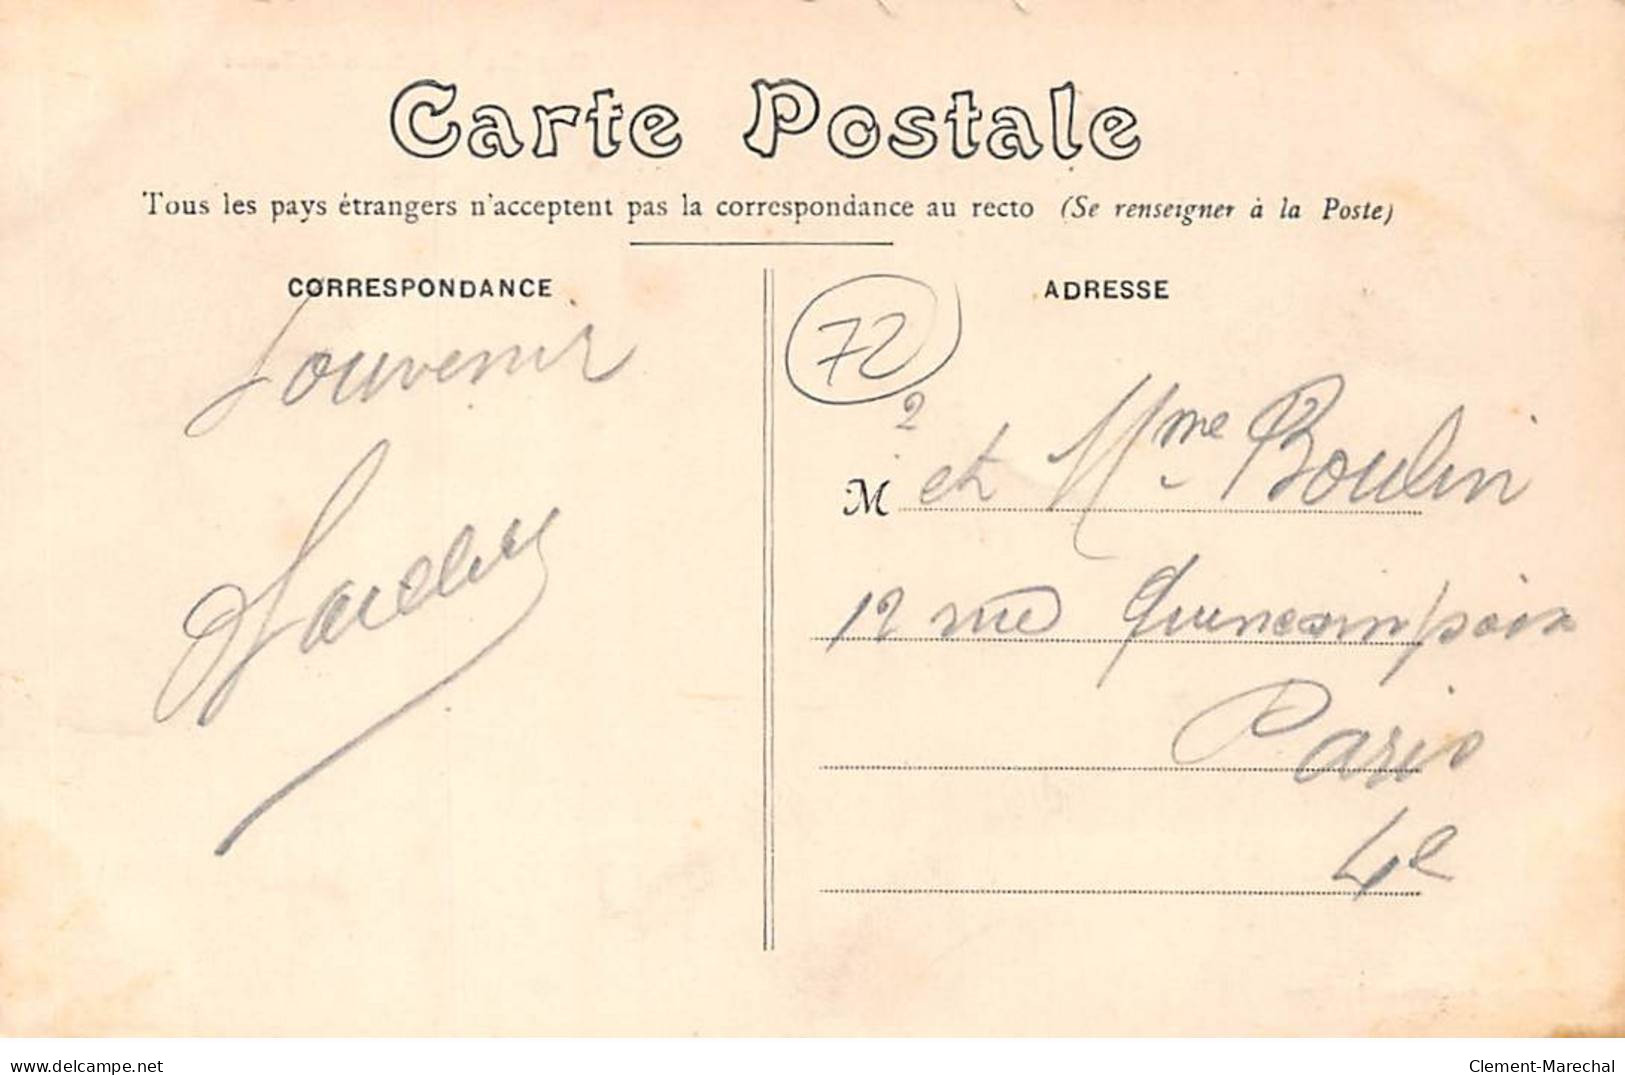 Carte Postale
Tous les pays étrangers n'acceptent pas la correspondance au recto (Se renseigner à la Poste)
CORRESPONDANCE
Souvenir
ADRESSE
72
2
M et Mme Boulin
12 rue Quincampoix
Paris
4e
www.delcampe.net
Clement-Marechal